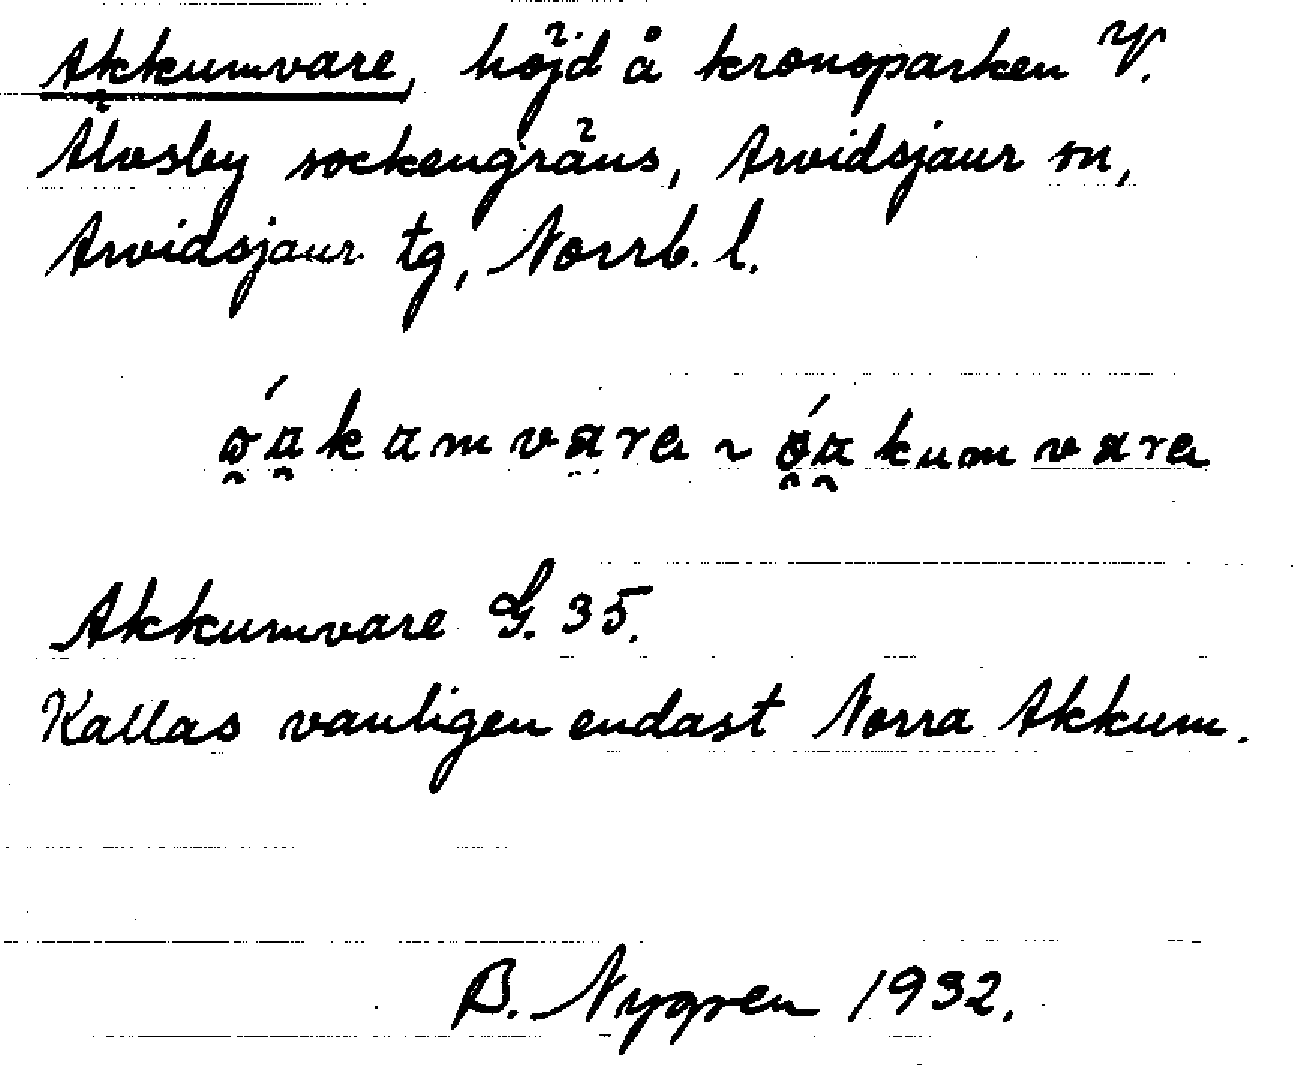 Akkumvare, höjd å kronoparken V.
Älvsby sockengräns, Arvidsjaur sn,
Arvidsjaur tg, Norrb. l.
Akkumvare G. 35.
Kallas vanligen endast Norra Akkum.
B. Nygren 1932.